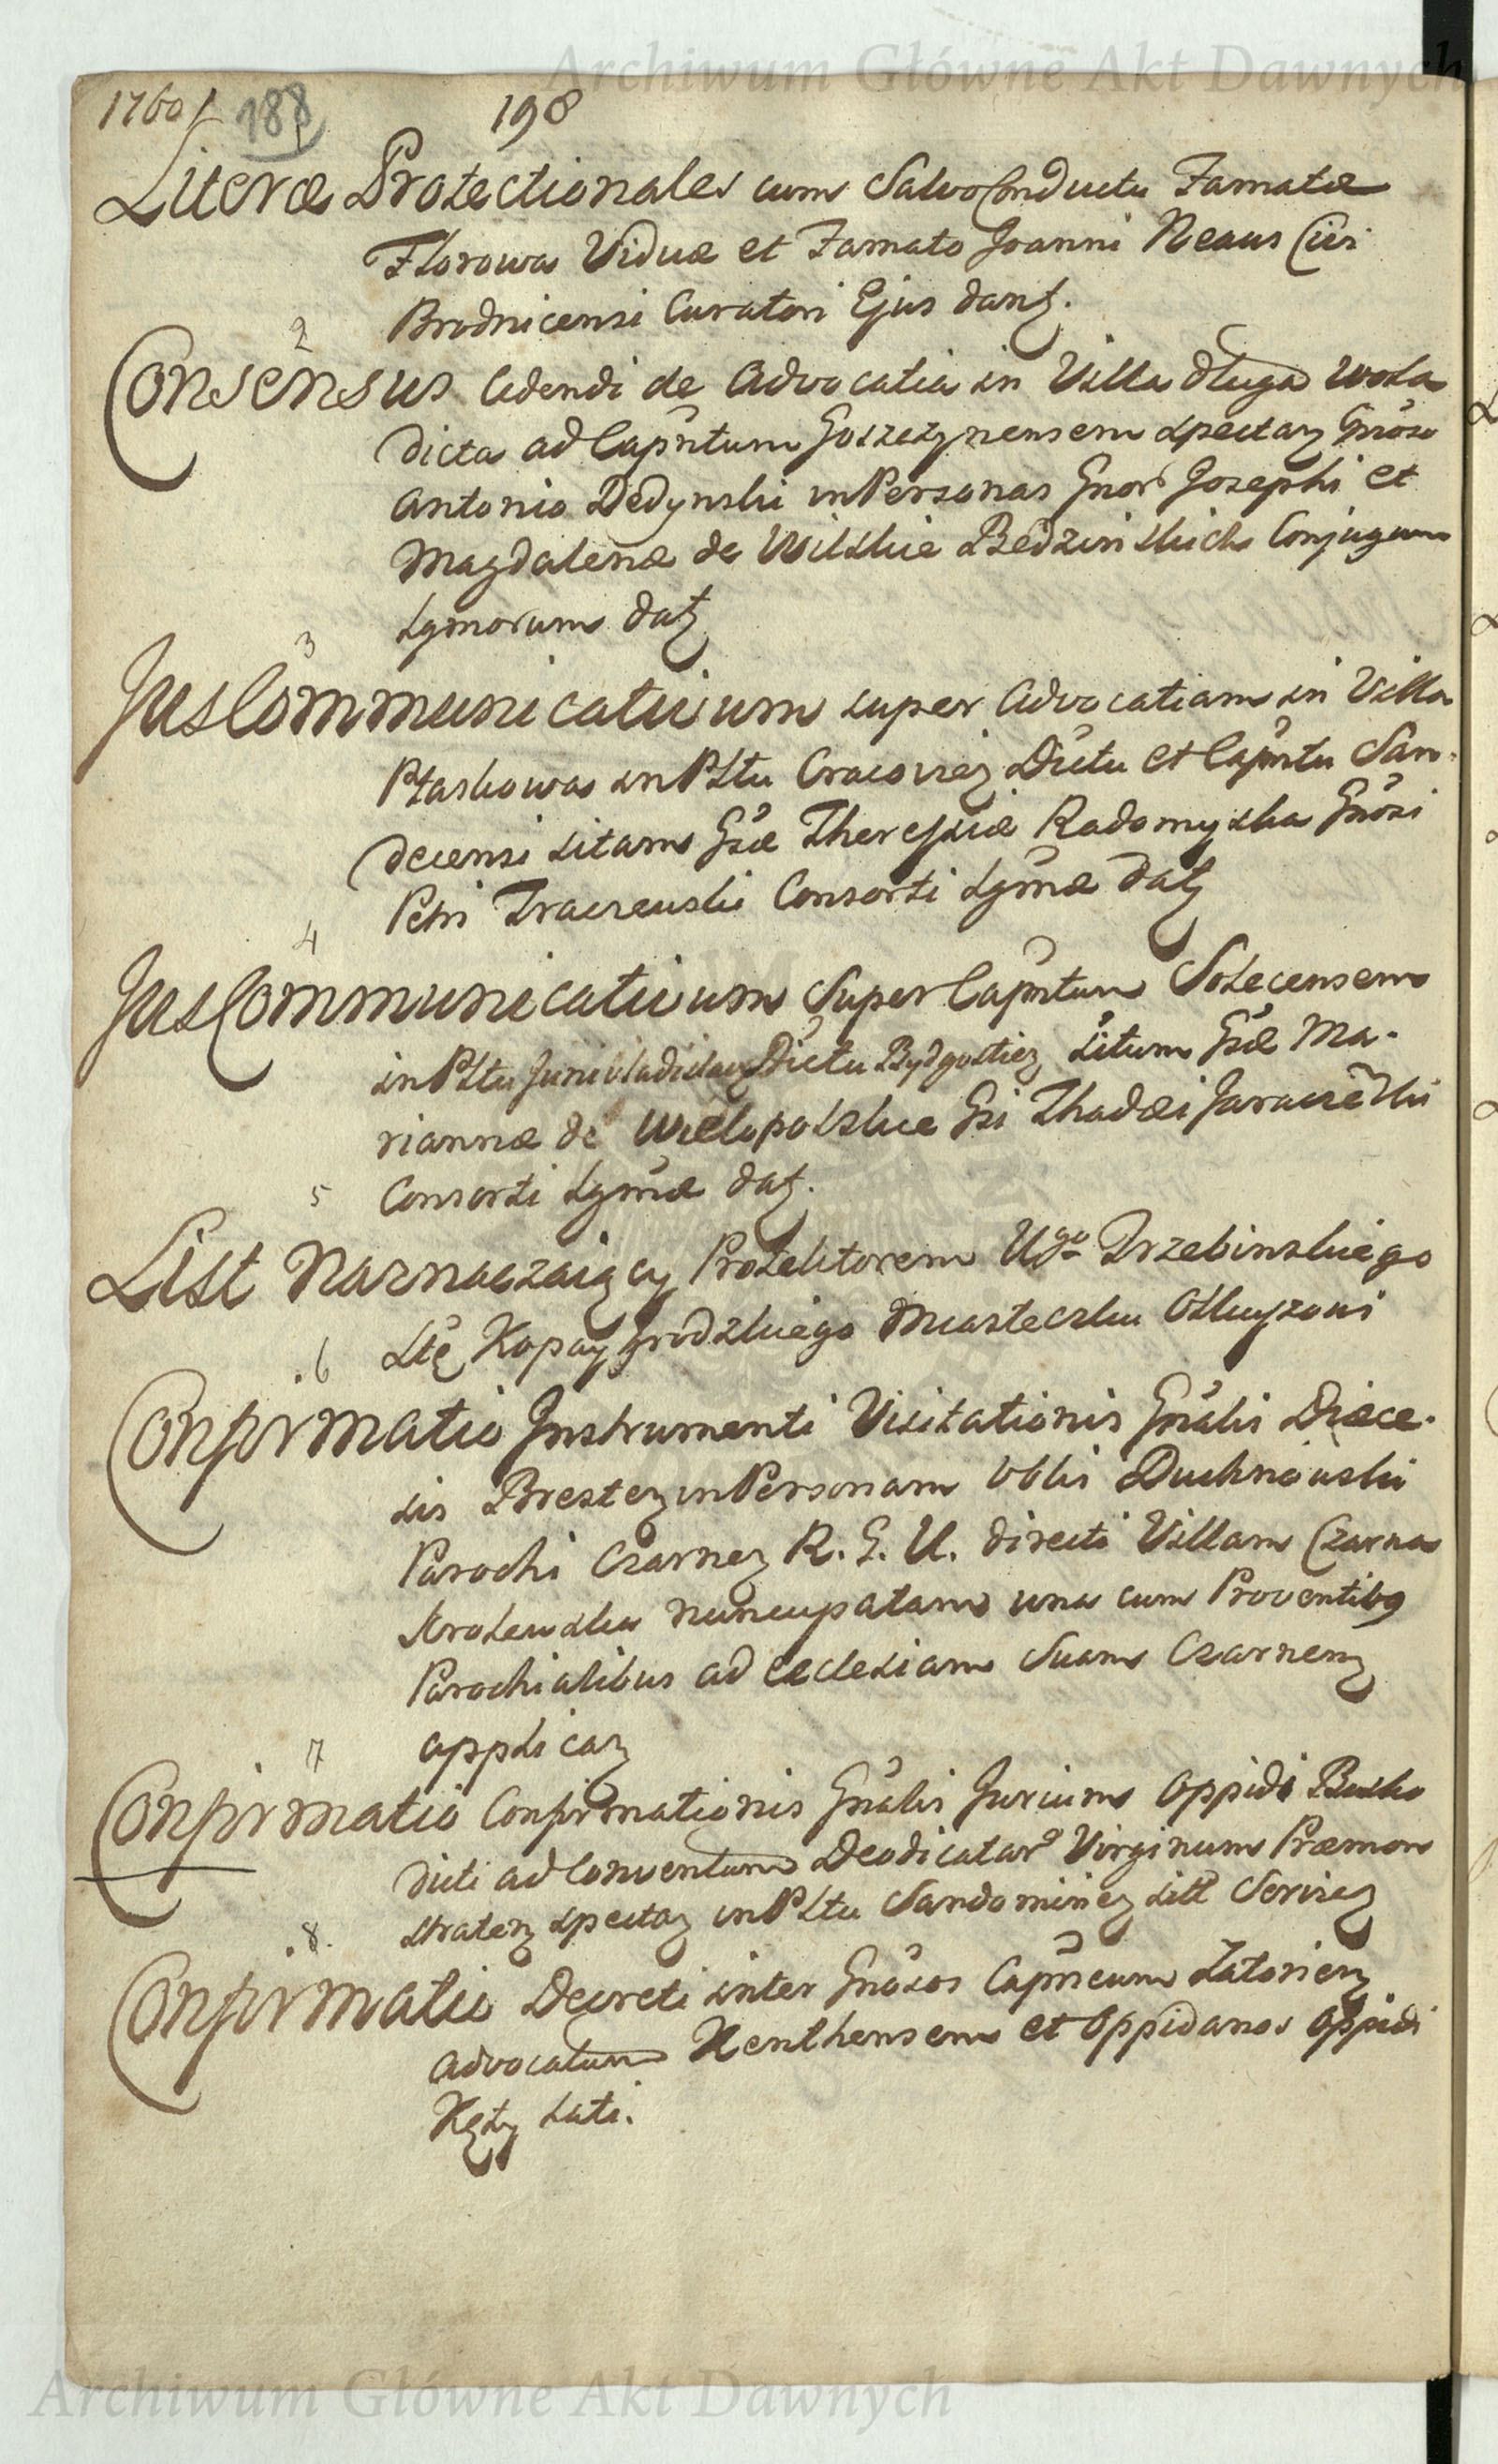 Archiwum Główne Akt Dawnych
1760 188 198
Literæ Protectionales cum Salvo Conductu Famatæ
Florowa Viduæ et Famato Joanni Neaus Civi
Brodnicensi Curatori Ejus dantz.
2
Consensus Cedendi de Advocatia in Villa długa Wola
dicta ad Capntum Goszczynensem spectan Gnoso
Antonio Dedynski in Personas Gnor Josephi et
Magdalenæ de Wilskie Bedzinskich Conjugum
Lgmorum datz
3
Jus Communicativum super Advocatiam in Villa
Ptaskowa in Pltu Cracovien Dictu et Capntu San-
decensi sitam Gsæ Theressiæ Radomyska Gnosi
Petri Traczewski Consorti Lgmæ datz
4
Jus Communicativum Super Capntum Solecensem
in Pltu Junivladislavien Dictu Bydgostien situm Gsæ Ma-
riannæ de Wielopolskie Gsi Thadæi Jaraczewski
Consorti Lgmæ datz.
5
List Naznaczaiący Protektorem Ugo Trzebinskiego
Stę Kopaygrodzkiego Miasteczku
6
Confirmatio Instrumenti Visitationis Gnalis Diæce-
sis Bresten in Personam Oblis Duchnowski
Parochi Czarnen R. G. U. directi Villam Czarna
Krolewska nuncupatam una cum Proventibus
Parochialibus ad Ecclesiam Suam Czarnen
applican
7
Confirmatio Confirmationis Gnalis Jurium Oppidi Busko
dicti ad Conventum Deodicatar Virginum Præmon
straten spectan in Pltu Sandomirien siti Servien
8.
Confirmatio Decreti inter Gnosos Capneum Zatorien
Advocatum Kenthensem et Oppidanos Oppidi
Kęty Lati.
Archiwum Główne Akt Dawnych